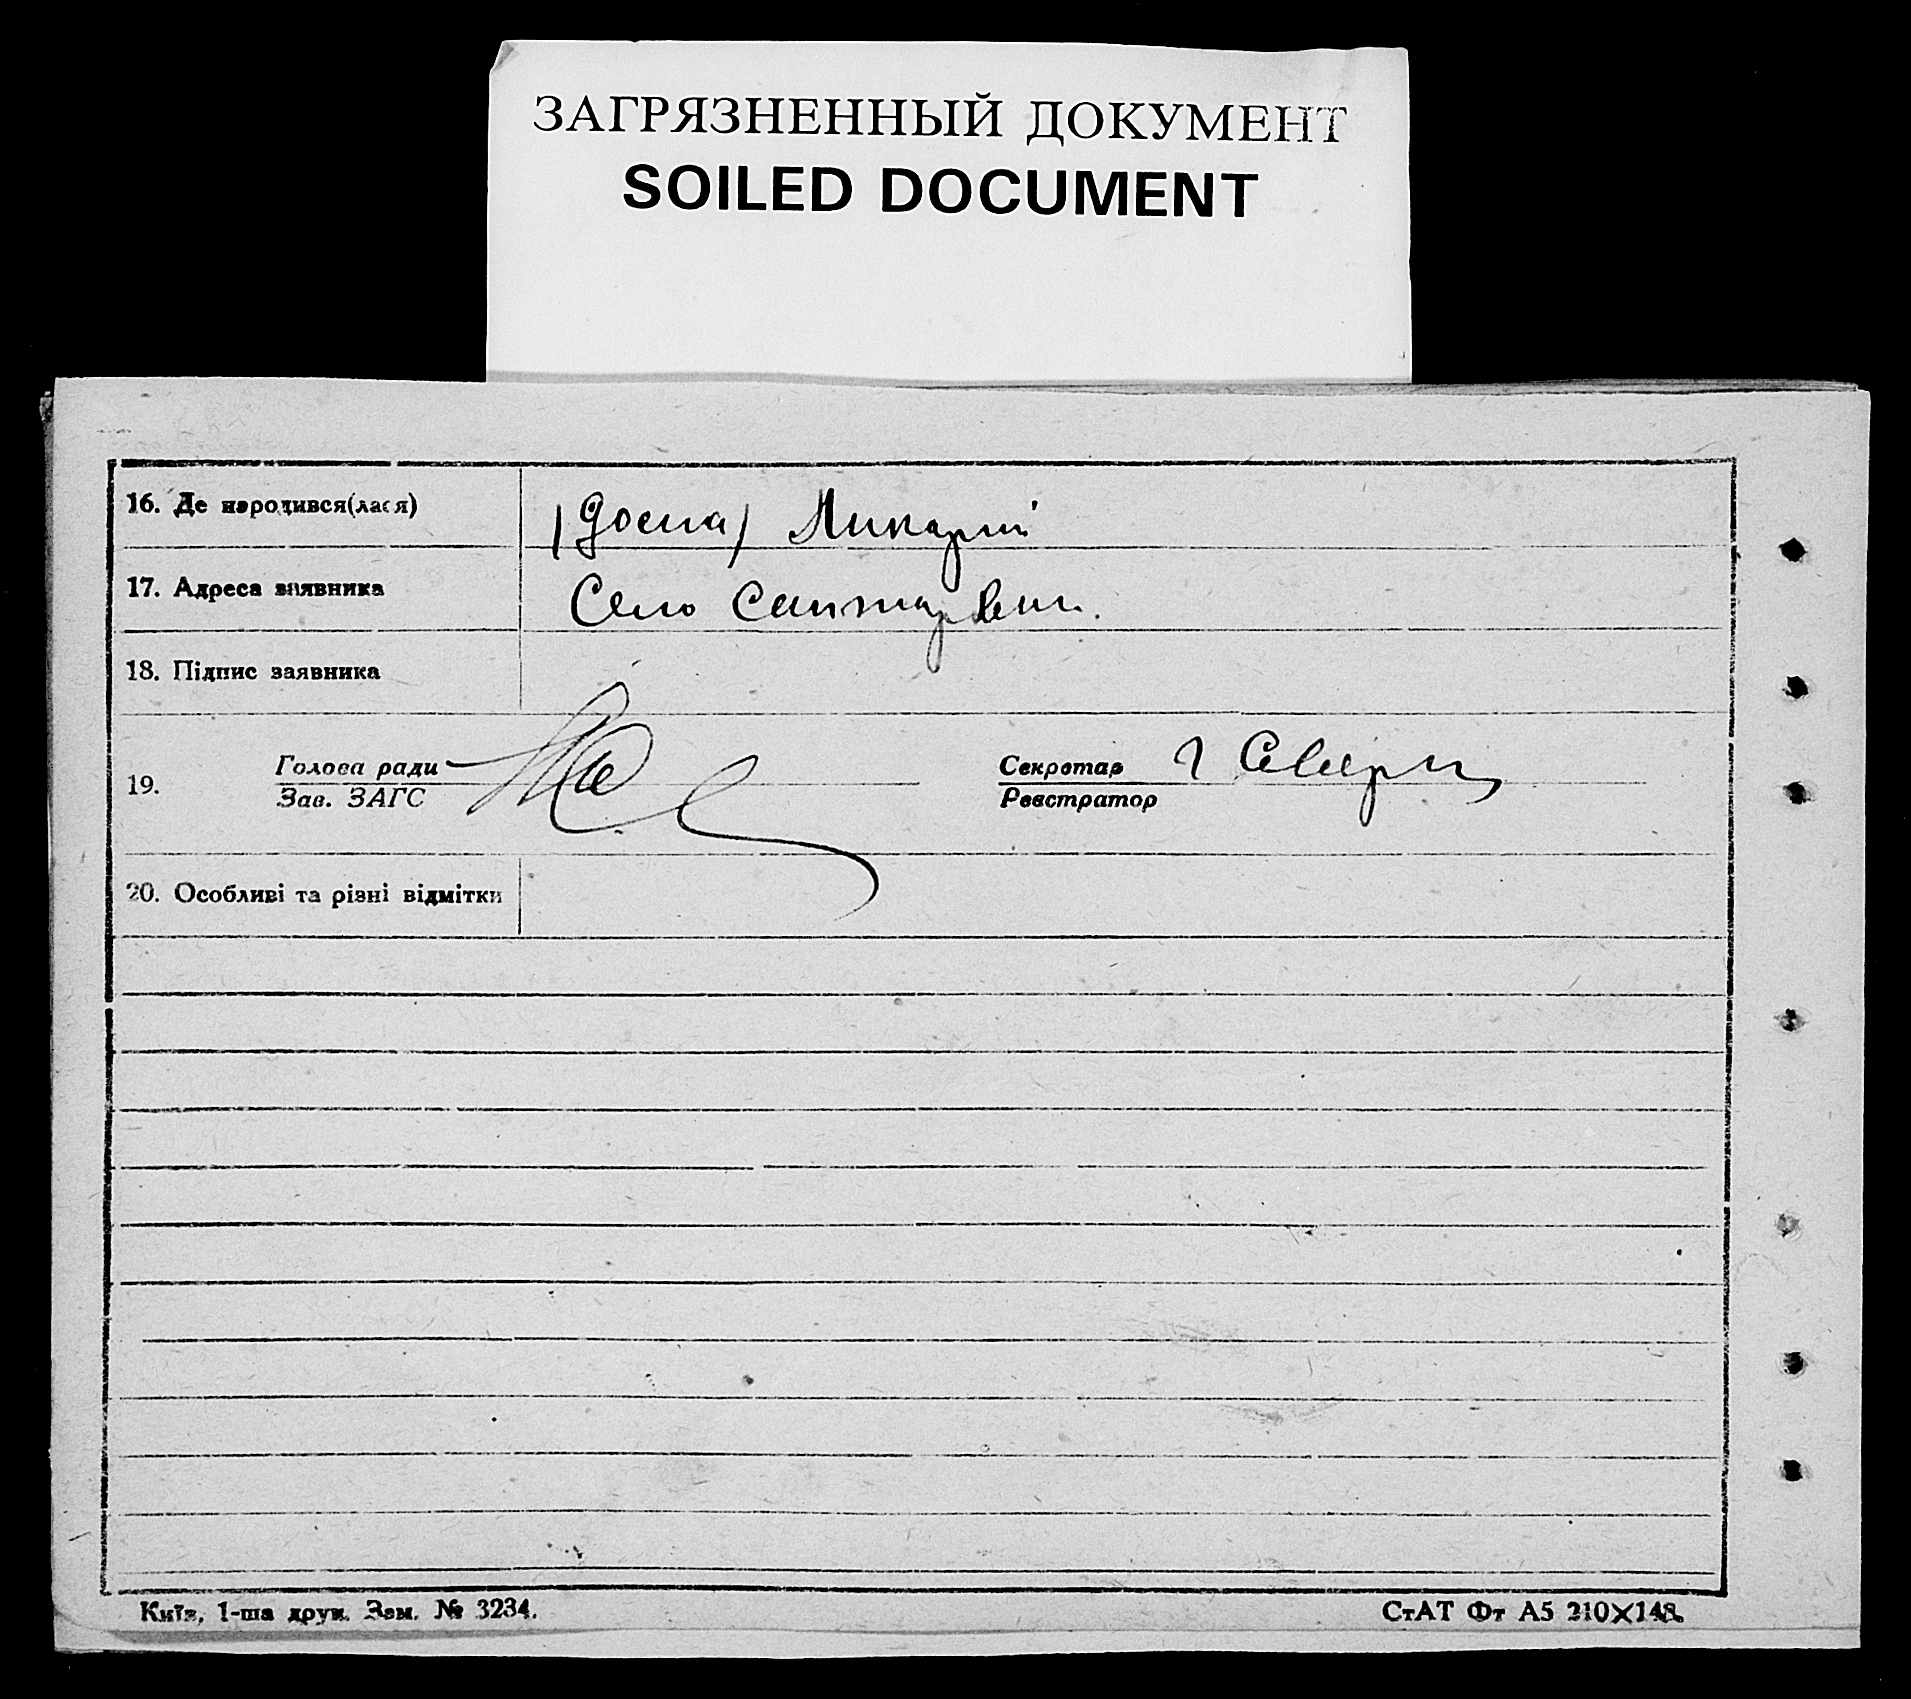 ЗАГРЯЗНЕННЫЙ ДОКУМЕНТ
SOILED DOCUMENT
16. Де народився(лася)
17. Адреса заявника
Село
18. Підпис заявника
19.
Голова ради
Зав. ЗАГС
Секретар
Реєстратор
20. Особливі та різні відмітки
Київ, 1-ша друк. Зам. № 3234.
СтАТ Фт А5 210×148.